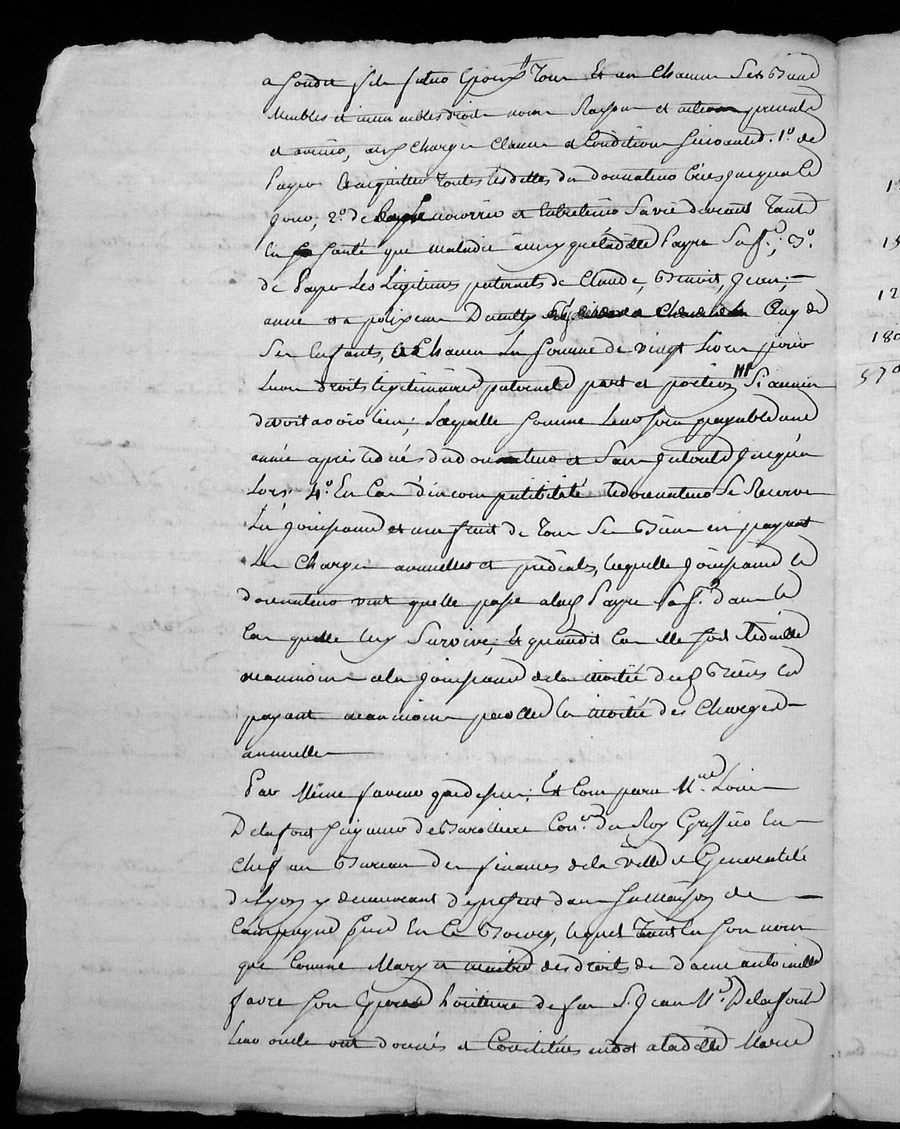 a sondit fils futur Epoux Tous Et un Chacun Ses Biens
Meubles et immeubles droits noms Raisons et actions presents
et avenir, aux Charges Clauses et Conditions Suivantes. 1.º de
Payer Et acquitter Toutes les dettes du donnateur Crées jusqua Ce
jour; 2.º de nourrir et Entretenir Sa vie durant Tant
En Santé que maladie ainsy que ladite Payre Sa f.e; 3.º
de Payer Les Legitimes paternels de Claude, Benoit, Jean,
anne et a Cinq de
Ses Enfants, a Chacun La Somme de vingt Livres pour
Leurs droits Legitimaires paternels part et portion Si aucun
droit avoir leur; Laquelle Somme Leur Sera payable une
année après le décès dudonnateur et Sans Interest Jusqua
Lors. 4.º En Cas d'incompatibilité ledonnateur Se Reserve
La Jouissance et usufruit de Tous Ses Biens en payant
Les Charges annuelles et prediales, laquelle Jouissance le
donnateur veut quelle passe alad Payre Sa f.e dans le
Cas quelle luy Survive, Et quand. Cas elle soit
neanmoins ala Jouissance dela moitié desd Biens En
payant neanmoins par elle la moitié des Charges
annuelles
Par Même faveur que dessus; Est Comparu M.re Louis
Delafont Seigneur de Barolliere Con.er du Roy Greffier En
Chef au Bureau des finances dela ville et Generalité
de Lyon y demeurant de present dans Sa Maison de
Campagne Scise En Ce Bourg, lequel Tant En Son nom
que Comme Mary et maitre des droits de dame antoinette
favre Son Epouse heritiere de feu S.r Jean M.e Delafont
Leur oncle ont donnés et Constitués en dot a ladite Marie